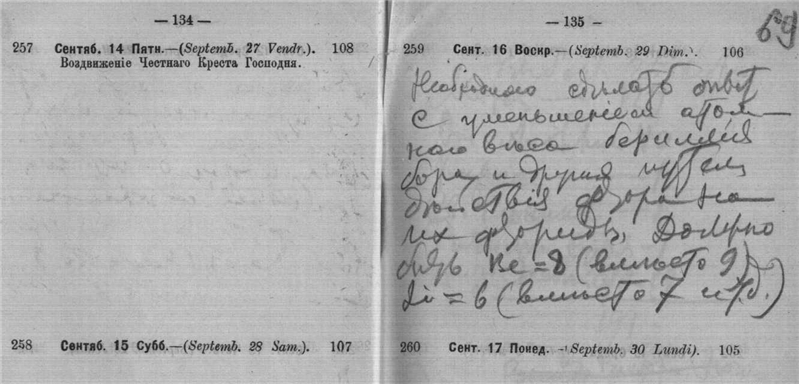 — 134 —
257 Сентяб. 14 Пятн.—(Septemb. 27 Vendr.). 108
Воздвиженіе Честнаго Креста Господня.
258 Сентяб. 15 Субб.—(Septemb. 28 Sam.). 107
— 135 –
69
259 Сент. 16 Воскр.—(Septemb. 29 Dim.). 106
Необходимо сдѣлать опыт
с уменьшеніем атом—
наго вѣса бериллия
бора и других путем
дѣйствія фтора на
их фториды. Должно
быть Be = 8 (вмѣсто 9)
Li = 6 (вмѣсто 7 и т.д.)
260 Сент. 17 Понед. —(Septemb. 30 Lundi). 105